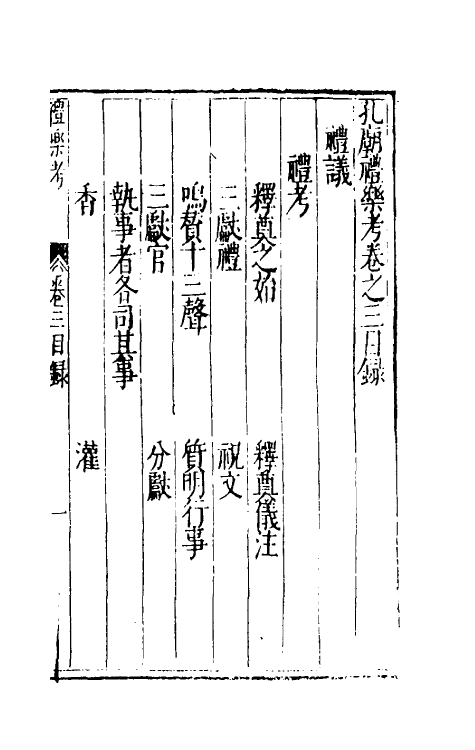 孔廟禮樂考卷之三目錄
禮議
禮考
釋奠之始 釋奠儀注
三獻禮 祝文
鳴贊十三聲 質明行事
三獻官 分獻
執事者各司其事
香 灌
禮樂考 卷三目錄 一